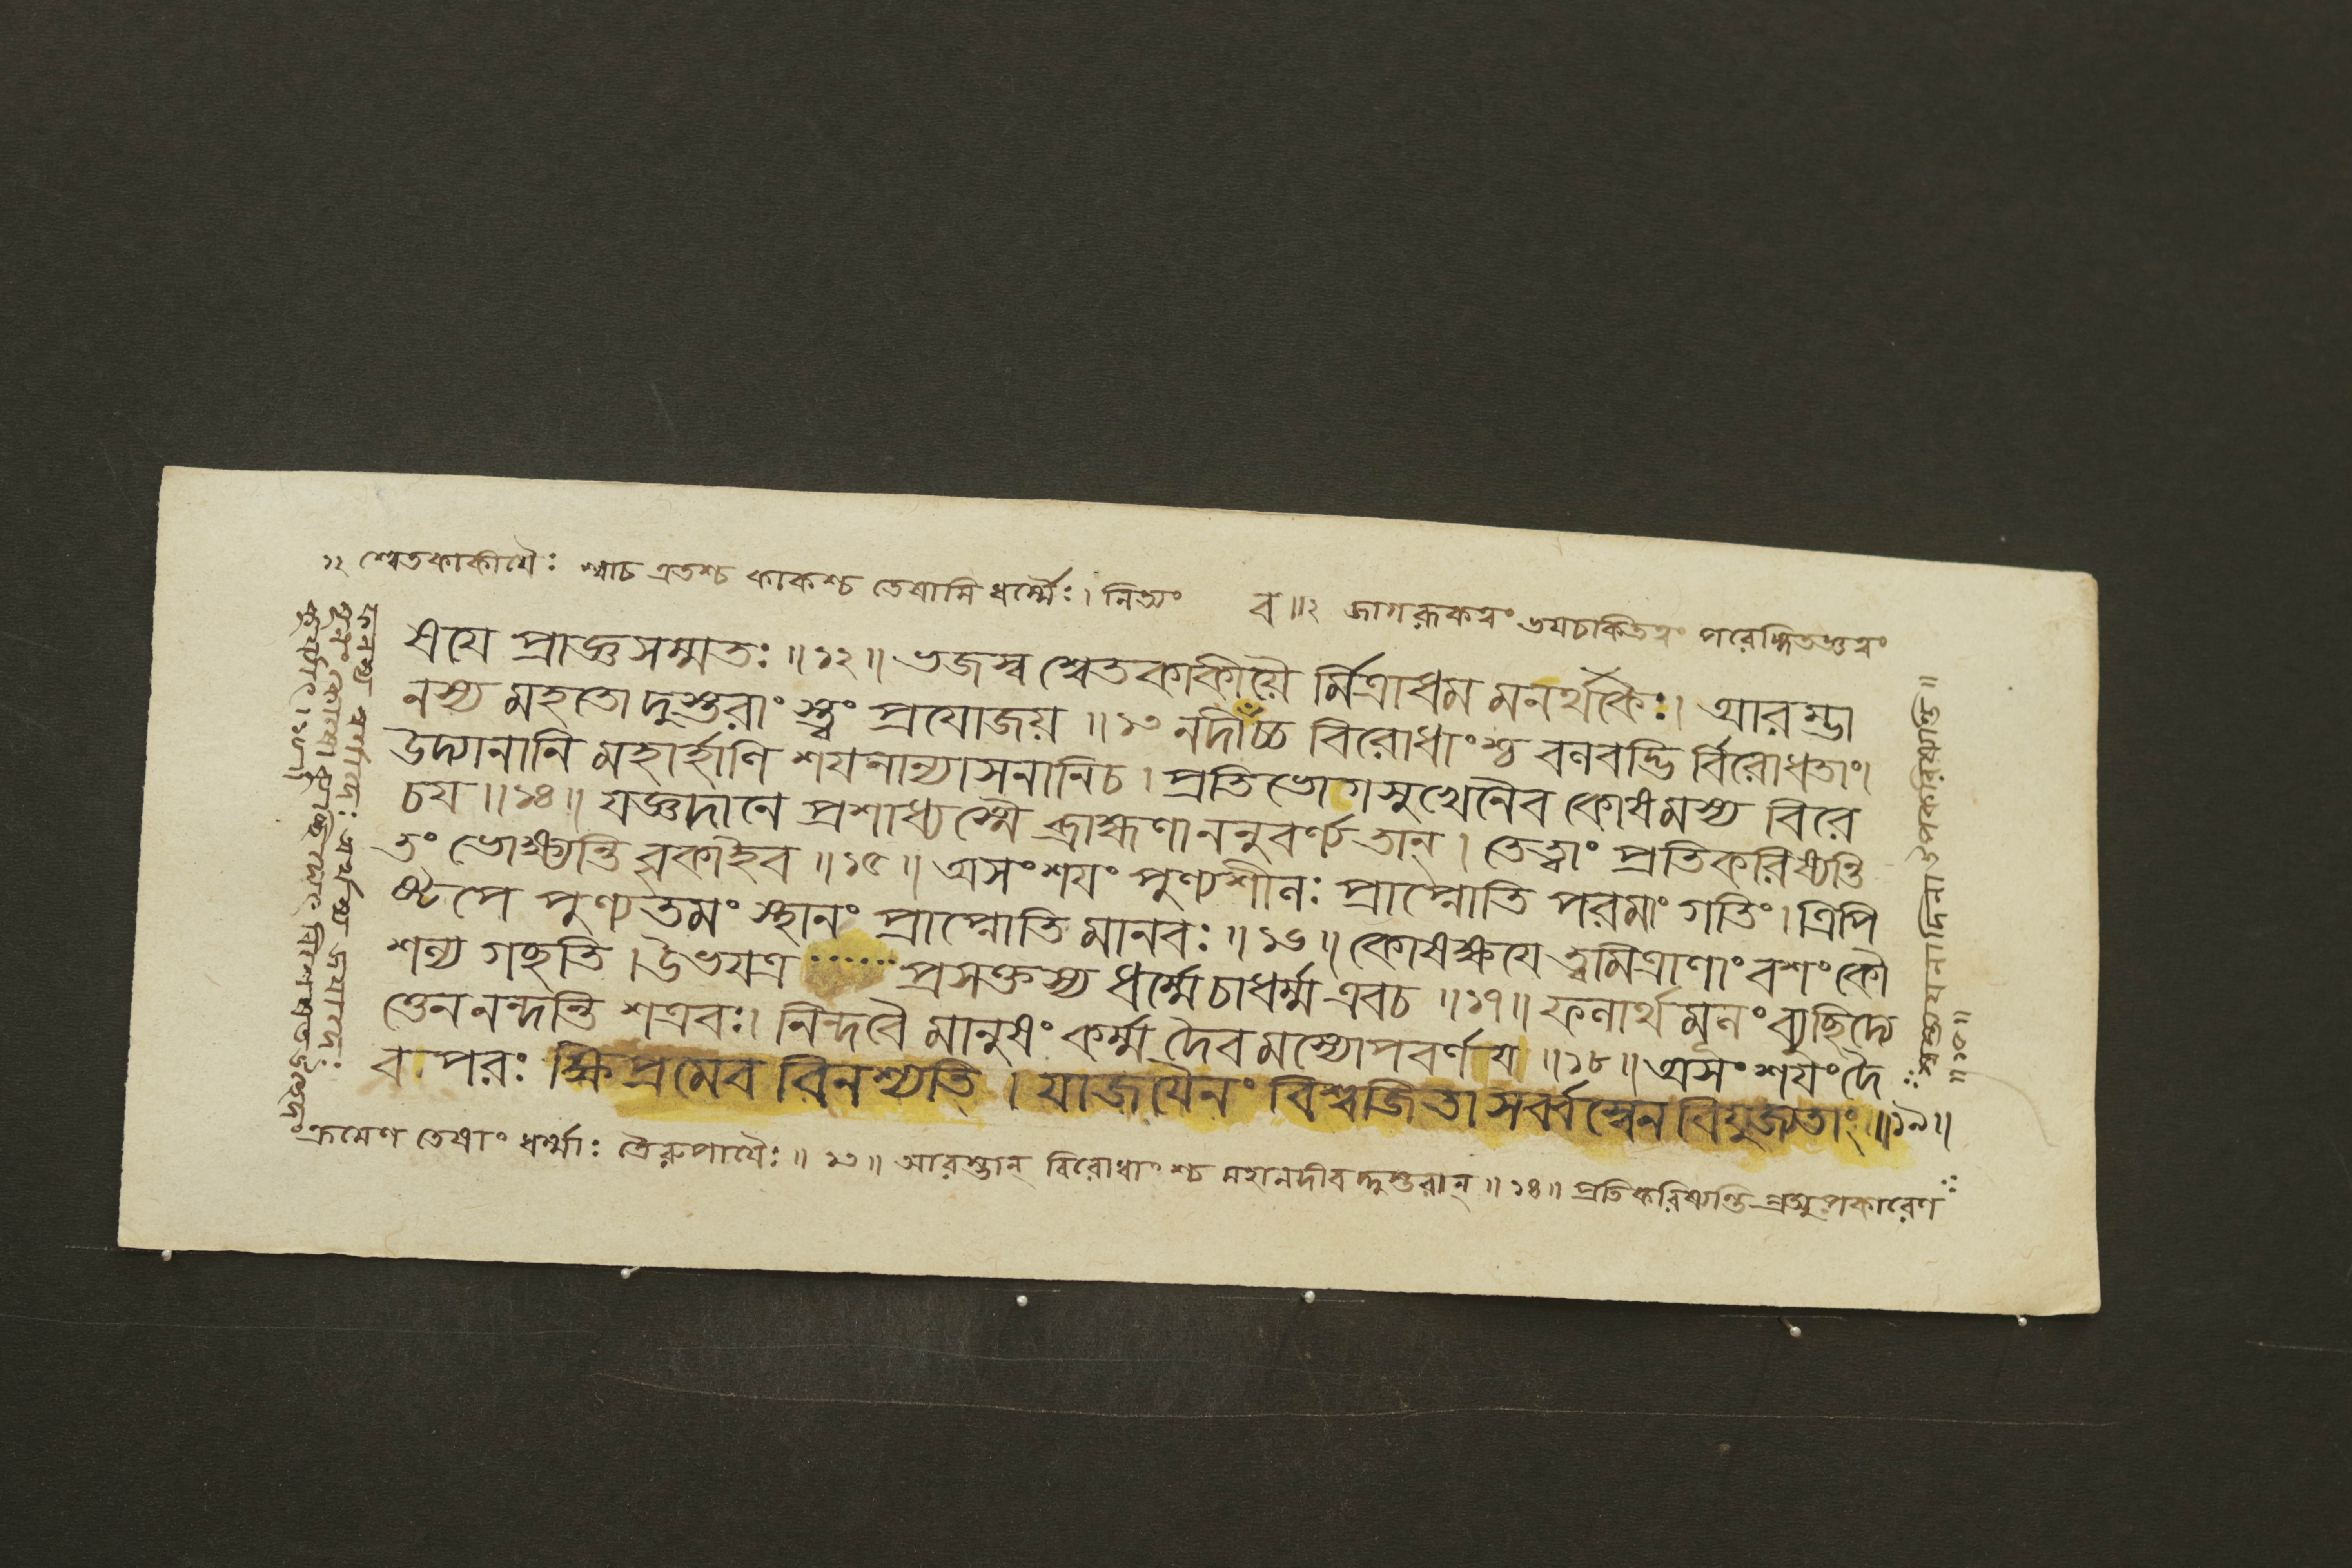 ১২ শ্বেতকাকীয়ৈঃ শ্বাচ এতশ্চ কাকশ্চ তেষামি ধর্ম্মৈঃ। নিত্যং ব॥২ জাগরূকত্বং ভয়চকিতত্বং পরেঙ্গিতজ্ঞত্বং
এযে প্রাজ্ঞসম্মতঃ॥১২॥ ভজস্ব শ্বেতকাকীয়ৈ র্মিত্রাধম মনর্থকৈঃ। আরম্ভা
নস্য মহতো দুস্তরাং স্ত্বং প্রযোজয়॥১৩ নদীচ্চ বিরোধাংশ্চ বলবদ্ভি র্বিরোধতাং।
উদ্যানানি মহার্হাণি শয়নান্যাসনানিচ। প্রতিভোগসুখেনৈব কোষমস্য বিরে
চয়॥১৪॥ যজ্ঞদানে প্রশাধ্যস্মৈ ব্রাহ্মণাননুবর্ণ্যতান্। তেত্বাং প্রতিকরিষ্যন্তি
তং ভোক্ষ্যন্তি বৃকাইব॥১৫॥ অসংশয়ং পুণ্যশীলঃ প্রাপ্নোতি পরমাং গতিং। ত্রিপি
ষ্টপে পুণ্যতমং স্থানং প্রাপ্নোতি মানবঃ॥১৬॥ কোষক্ষয়ে ত্বমিত্রাণাং বশং কৌ
শল্য গচ্ছতি। উভয়ত্র ······ প্রসক্তস্য ধর্ম্মেচাধর্ম্ম এবচ॥১৭॥ ফলার্থ মূলং ব্যুচ্ছিদ্যে
ত্তেন নন্দন্তি শত্রবঃ। নিন্দবৈ মানুষং কর্ম্ম দৈবমস্যোপবর্ণয়॥১৮॥ অসংশয়ং দৈ
বপরঃ ক্ষিপ্রমেব বিনশ্যতি। যাজয়ৈনং বিশ্বজিতা সর্ব্বস্বেন বিযুজ্যতাং॥১৯॥
ক্রমেণ তেষাং ধর্ম্মাঃ তৈরুপায়ৈঃ॥১৩॥ আরম্ভান্ বিরোধাংশ্চ মহানদীবদ্দুস্তরান্॥১৪॥ প্রতিকরিষ্যন্তি প্রত্যুপকারেণ
স্বস্ত্যয়নাদিনা উপকরিষ্যন্তি॥
॥১৫॥